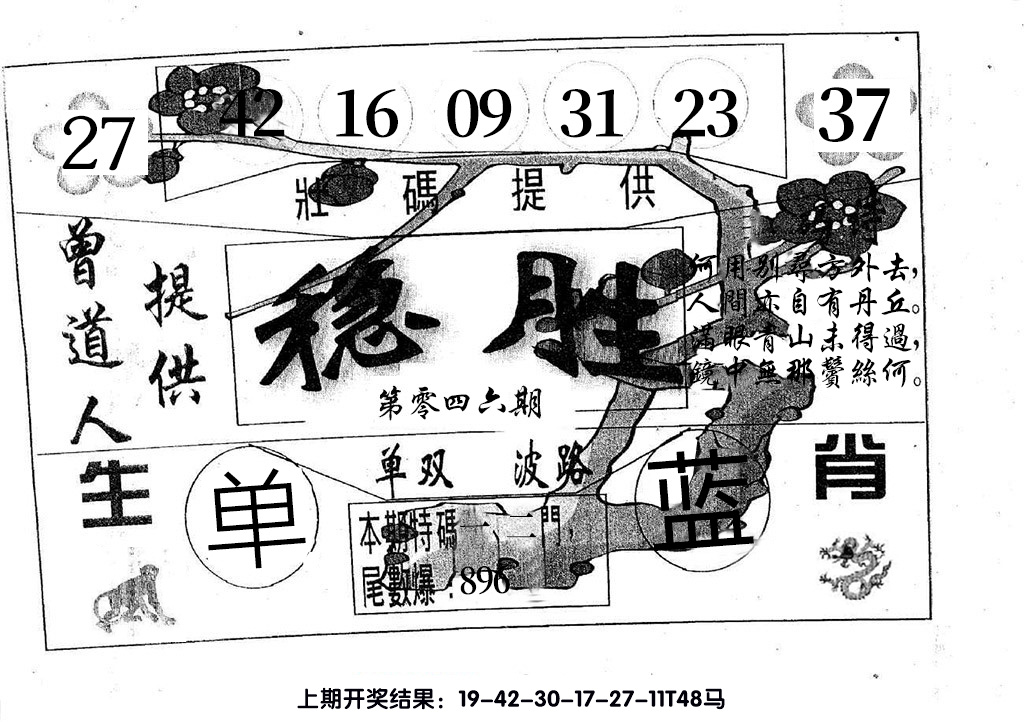 27 42 16 09 31 23 37
壯碼提供
曾道人
提供
穩胜
第零四六期
何用别尋方外去，
人間亦自有丹丘。
滿眼青山未得過，
鏡中無那鬢絲何。
单双 波路
生肖
单
蓝
本期特碼一、二門，
尾數爆：896
上期开奖结果：19-42-30-17-27-11T48马